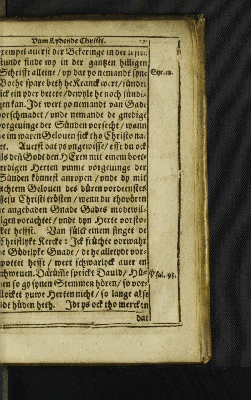 Vam Lydende Christi.
rempel averst der Bekeringe in der
stunde finde wy in der gantzen hilligen
Schrifft alleine / up dat yo nemandt
Bothe spare beth he Kranck wert / sünder
sick ein yder betere / dewyle he noch
gen kan. Idt wert yo nemandt van Gade
vorschmadet / unde nemande de gnedige
vorgevinge der Sünden vorsecht / wenn
he im waren Geloven sick tho Christo
Averst dat ys ungewisse / efft du ock
Godt den HEren mit einem
Herten umme vorgevinge der
Sünden könnest anropen / unde dy mit
rechtem Geloven des düren vordenstes
Jesu Christi trösten / wenn du thovören
angebaden Gnade Gades
vorachtet / unde dyn Herte
hefft. Van sülck einem singet de
Christlyke Kercke: Ick früchte vorwahr
Godtlyke Gnade / de he alletydt
spottet hefft / wert schwarlyck aver em
schweven. Darümme sprickt David / Hü-
den so gy synen Stemmen hören / so vor-
stocket yuwe Herten nicht / so lange alse
idt hüden heth. Idt ys ock tho mercken
dat
Syr. 18.
Psal. 95.